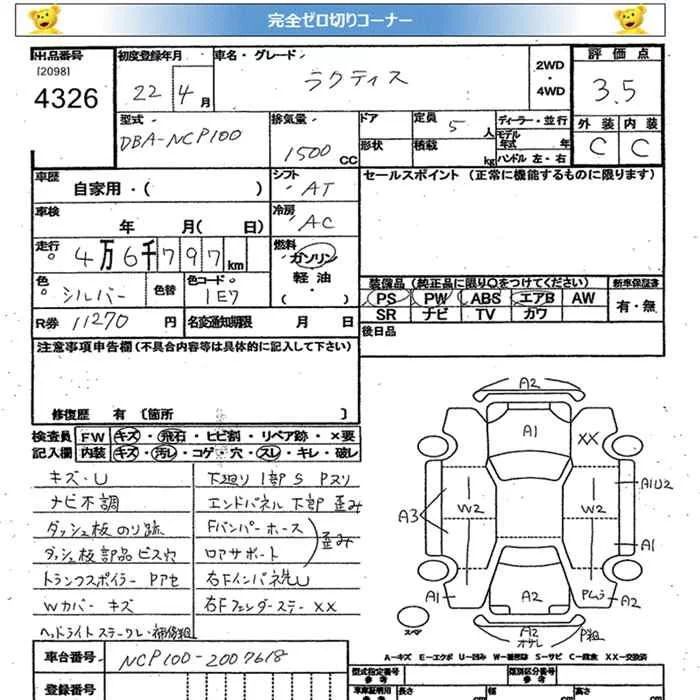 完全ゼロ切りコーナー
出品番号
[2098]
4326
初度登録年月
22 4 月
車名・グレード
ラクティス
2WD
・
4WD
評価点
3.5
外装 内装
C C
型式
DBA-NCP100
排気量
1500 CC
ドア
定員 5 人
形状
積載 kg
ディーラー・並行
モデル
年式 年
ハンドル 左・右
車歴
自家用・( )
シフト
AT
セールスポイント (正常に機能するものに限ります)
車検
年 月( 日)
冷房
AC
走行
4万6千797 km
燃料
ガソリン
軽油
・( )
色
シルバー
色替
色コード
1E7
装備品 (純正品に限り○をつけてください)
新車保証書
PS PW ABS エアB AW
SR ナビ TV カワ
有・無
R券 11270 円
名変通知期限 月 日
後日品
注意事項申告欄 (不具合内容等は具体的に記入して下さい)
修復歴 有 [箇所 ]
検査員
記入欄
FW キズ・飛石・ヒビ割・リペア跡・×要
内装 キズ・汚レ・コゲ・穴・スレ・キレ・破レ
キズ・U
ナビ不調
ダッシュ板のり跡
ダッシュ板部品ビス穴
トランクスポイラー Pアセ
Wカバー キズ
ヘッドライト
下廻り 1部S Pスリ
エンドパネル 下部 歪み
Fバンパーホース
ロアサポート
歪み
右FインパネU
右Fフェンダーステー XX
A2
A1
XX
W2
W2
A1U2
A3
A1
A1
A2
A2
スペア
A2
P粗
A-キズ E-エクボ U-凹み W-補修跡 S-サビ C-腐食 XX-交換済
車台番号 NCP100-2007618
登録番号
型式指定番号
参考
類別区分番号
参考
車庫証明用
参考
長さ cm
幅 cm
高さ cm